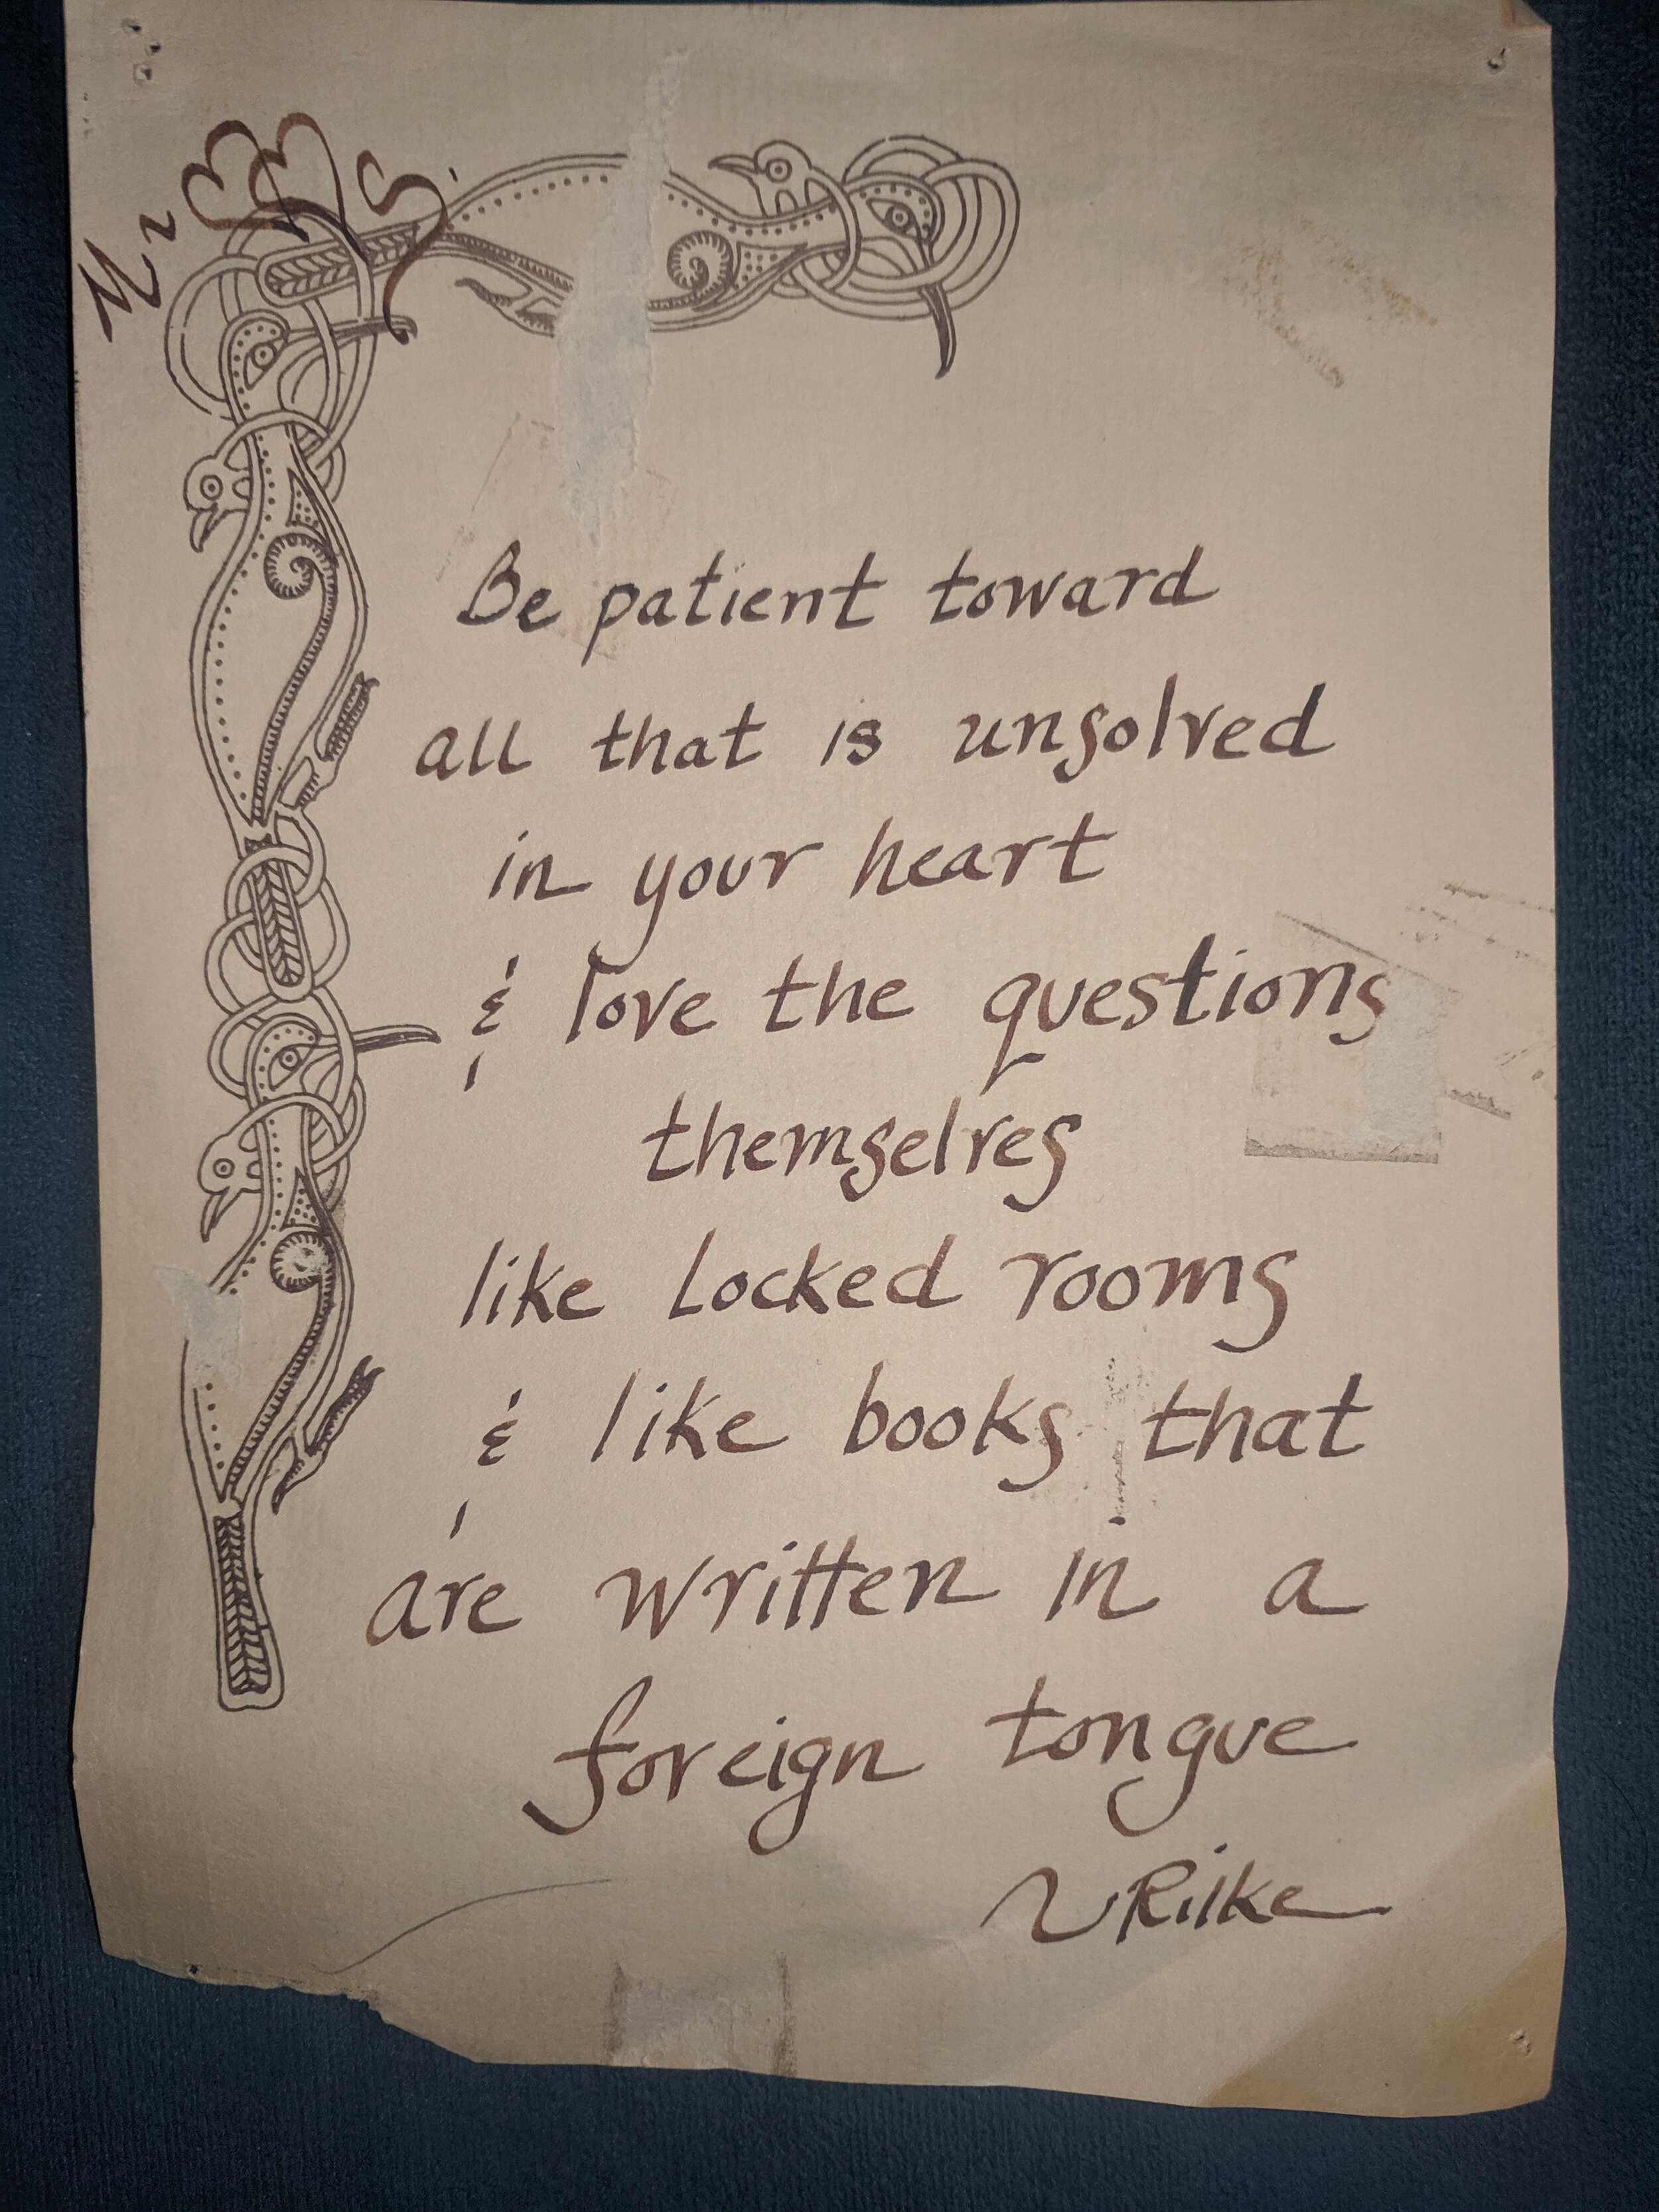 Be patient toward
all that is unsolved
in your heart
& love the questions
themselves
like locked rooms
& like books that
are written in a
foreign tongue
~ Rilke